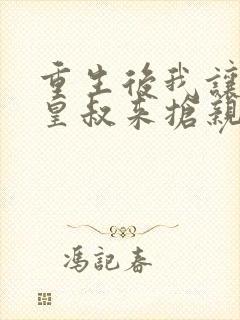 重生後我讓
皇叔来搶親
馮記春